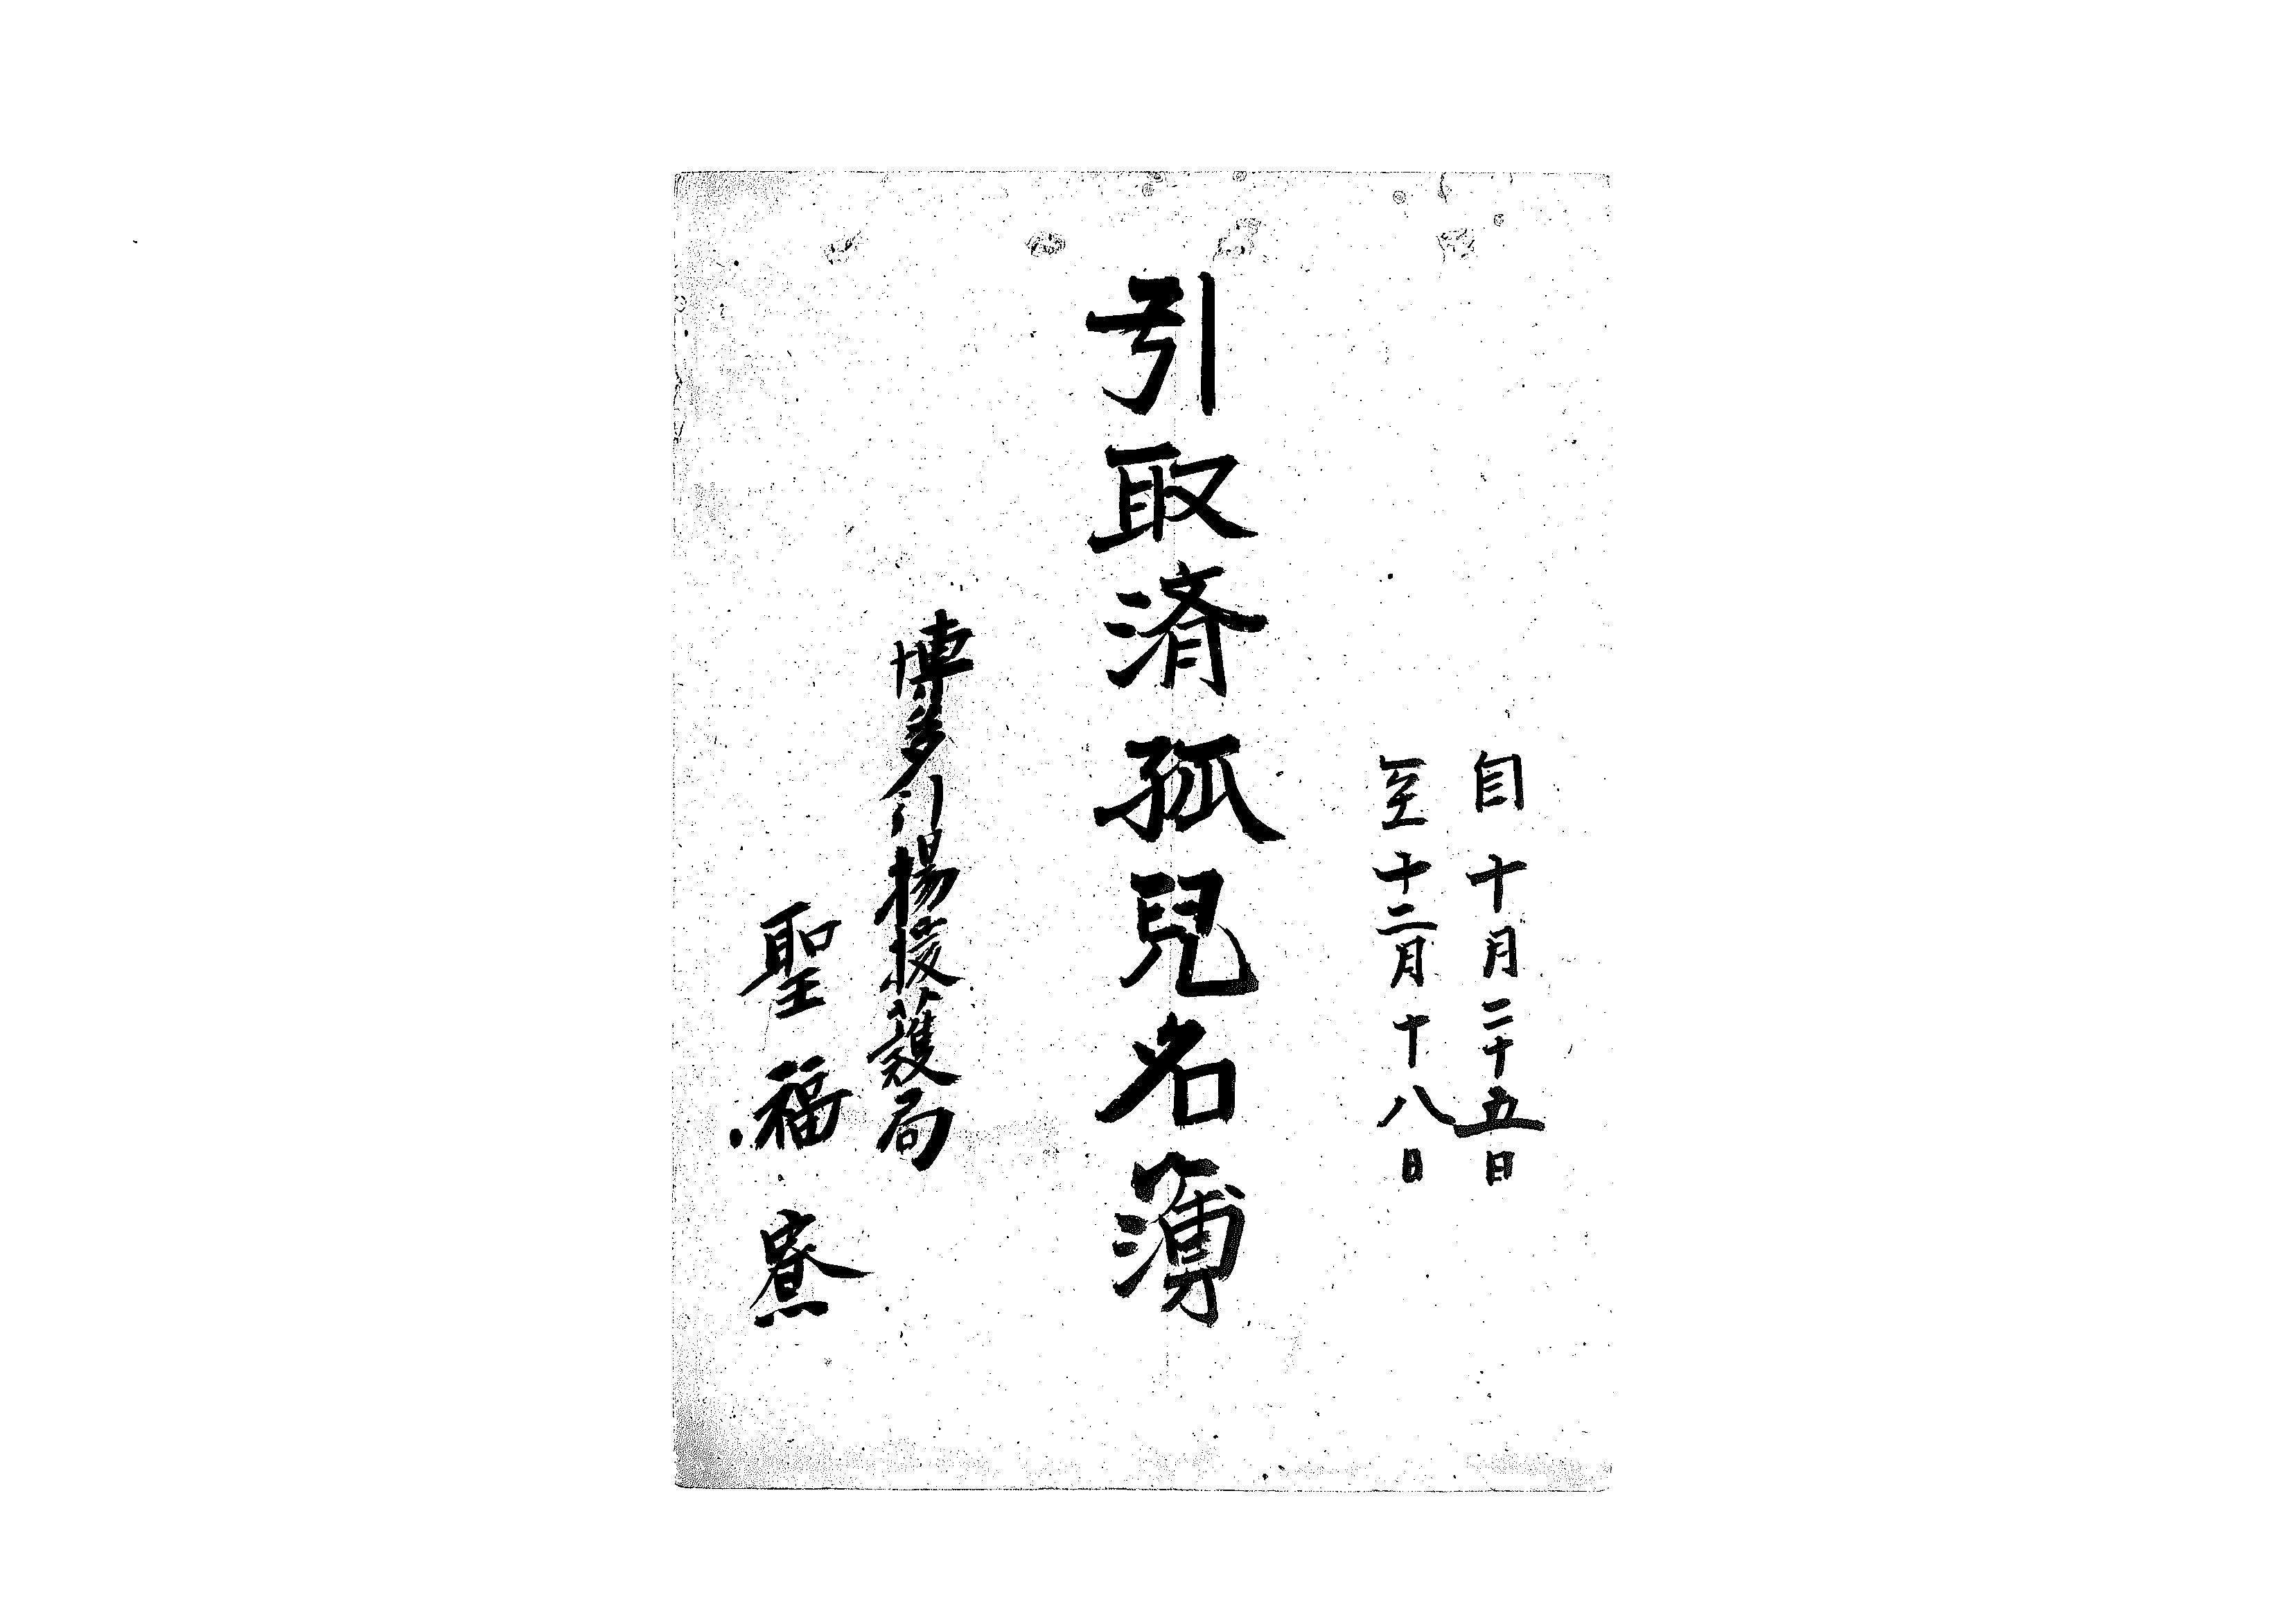 自十月二十五日
至十二月十八日
引取済孤兒名簿
博多引揚援護局
聖福寮